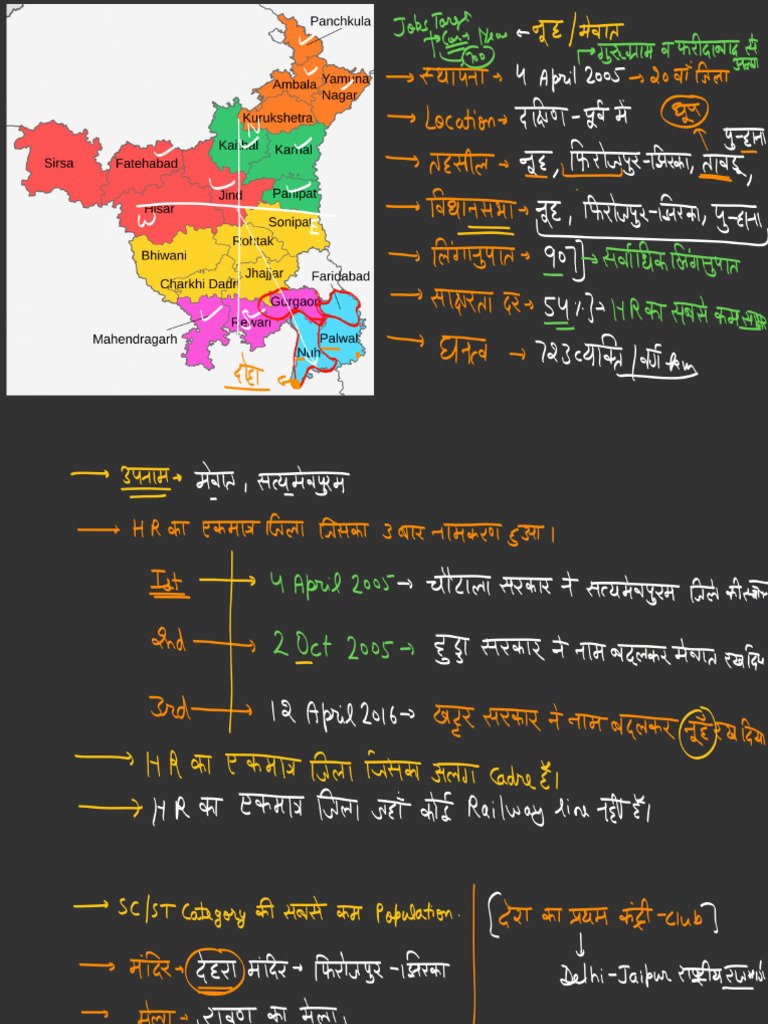 Panchkula
Ambala
Yamuna
Nagar
Kurukshetra
Kaithal
Karnal
Sirsa
Fatehabad
Jind
Panipat
Hisar
Sonipat
Rohtak
Bhiwani
Jhajjar
Charkhi Dadri
Faridabad
Gurgaon
Rewari
Mahendragarh
Palwal
Nuh
N
W
E
Jobs Target
नूह / मेवात
गुरुग्राम व फरीदाबाद से
स्थापना → 4 April 2005 → 20 वाँ जिला
Location → दक्षिण - पूर्व में
पुन्हाना
तहसील → नूह, फिरोजपुर-झिरका, तावडू,
विधानसभा → नूह, फिरोजपुर-झिरका, पुन्हाना
लिंगानुपात → 907 } → सर्वाधिक लिंगानुपात
साक्षरता दर → 54 % } → HR का सबसे कम
घनत्व → 723 व्यक्ति / वर्ग km
→ उपनाम → मेवात, सत्यमेवपुरम
→ HR का एकमात्र जिला जिसका 3 बार नामकरण हुआ।
Ist → 4 April 2005 → चौटाला सरकार ने सत्यमेवपुरम जिले की
2nd → 2 Oct 2005 → हुड्डा सरकार ने नाम बदलकर मेवात रख दिया
3rd → 12 April 2016 → खट्टर सरकार ने नाम बदलकर नूहँ रख दिया
→ HR का एकमात्र जिला जिसका अलग Cadre हैं।
→ HR का एकमात्र जिला जहाँ कोई Railway line नहीं हैं।
→ SC/ST Category की सबसे कम Population.
[देश का प्रथम कंट्री-Club]
→ मंदिर → देहरा मंदिर → फिरोजपुर-झिरका
Delhi-Jaipur राष्ट्रीय राजमार्ग
→ मेला → रावण का मेला,